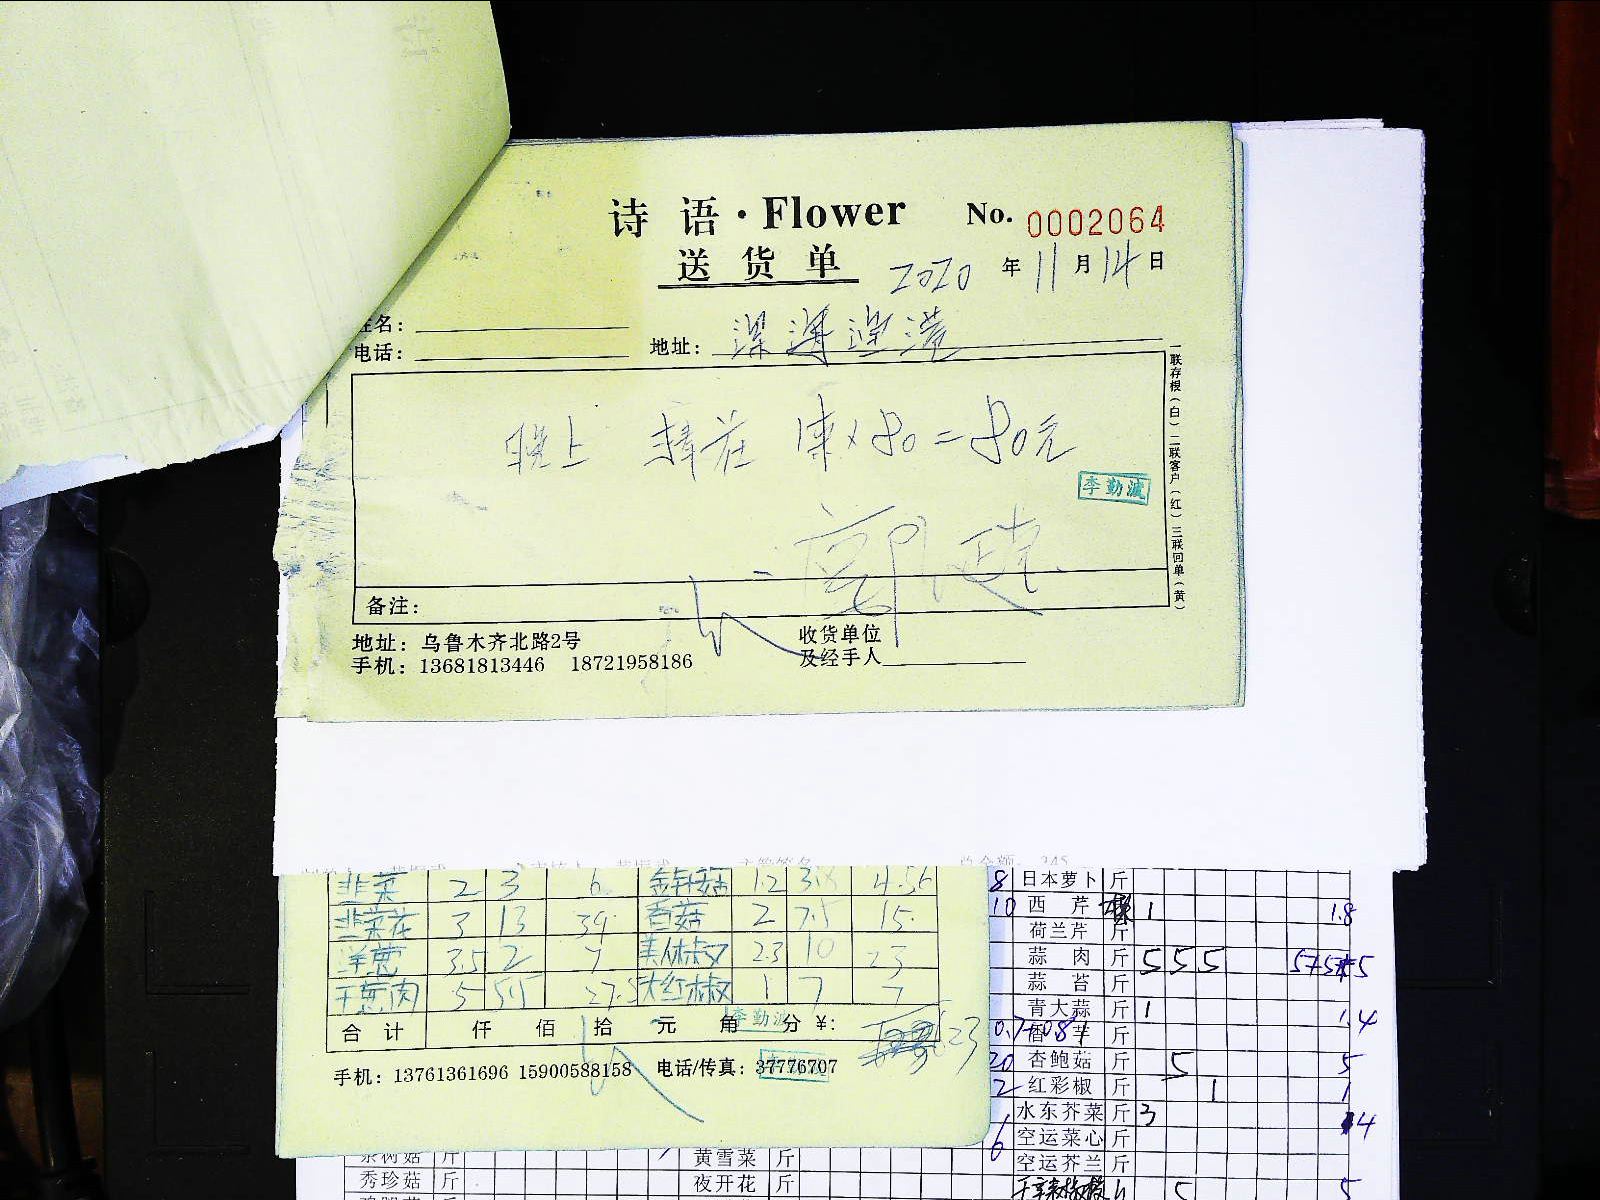 诗 语·Flower No. 0002064
送 货 单 2020 年 11 月 14 日
姓名：
电话： 地址：
晚上 捧花 1束×80=80元
李勤波
备注：
一联存根（白）二联客户（红）三联回单（黄）
地址：乌鲁木齐北路2号
手机：13681813446 18721958186
收货单位
及经手人
总金额： 345
韭菜 2 3 6 金针菇 1.2 3.8 4.56
韭菜花 3 13 39 香菇 2 7.5 15
洋葱 3.5 2 7 美人椒 2.3 10 23
干葱肉 5 5.5 27.5 大红椒 1 7 7
合 计 仟 佰 拾 元 角 分 ¥: 623
李勤波
手机：13761361696 15900588158 电话/传真：37776707
8 日本萝卜 斤
10 西 芹 1 1.8
荷兰芹 斤
蒜 肉 斤 5 5 5
蒜 苔 斤
青大蒜 斤 1 1.4
香 芋 斤
20 杏鲍菇 斤 5 5
2 红彩椒 斤 1 1
水东芥菜 斤 3 4
6 空运菜心 斤
空运芥兰 斤
茶树菇 斤 黄雪菜 斤
秀珍菇 斤 夜开花 斤
5 5